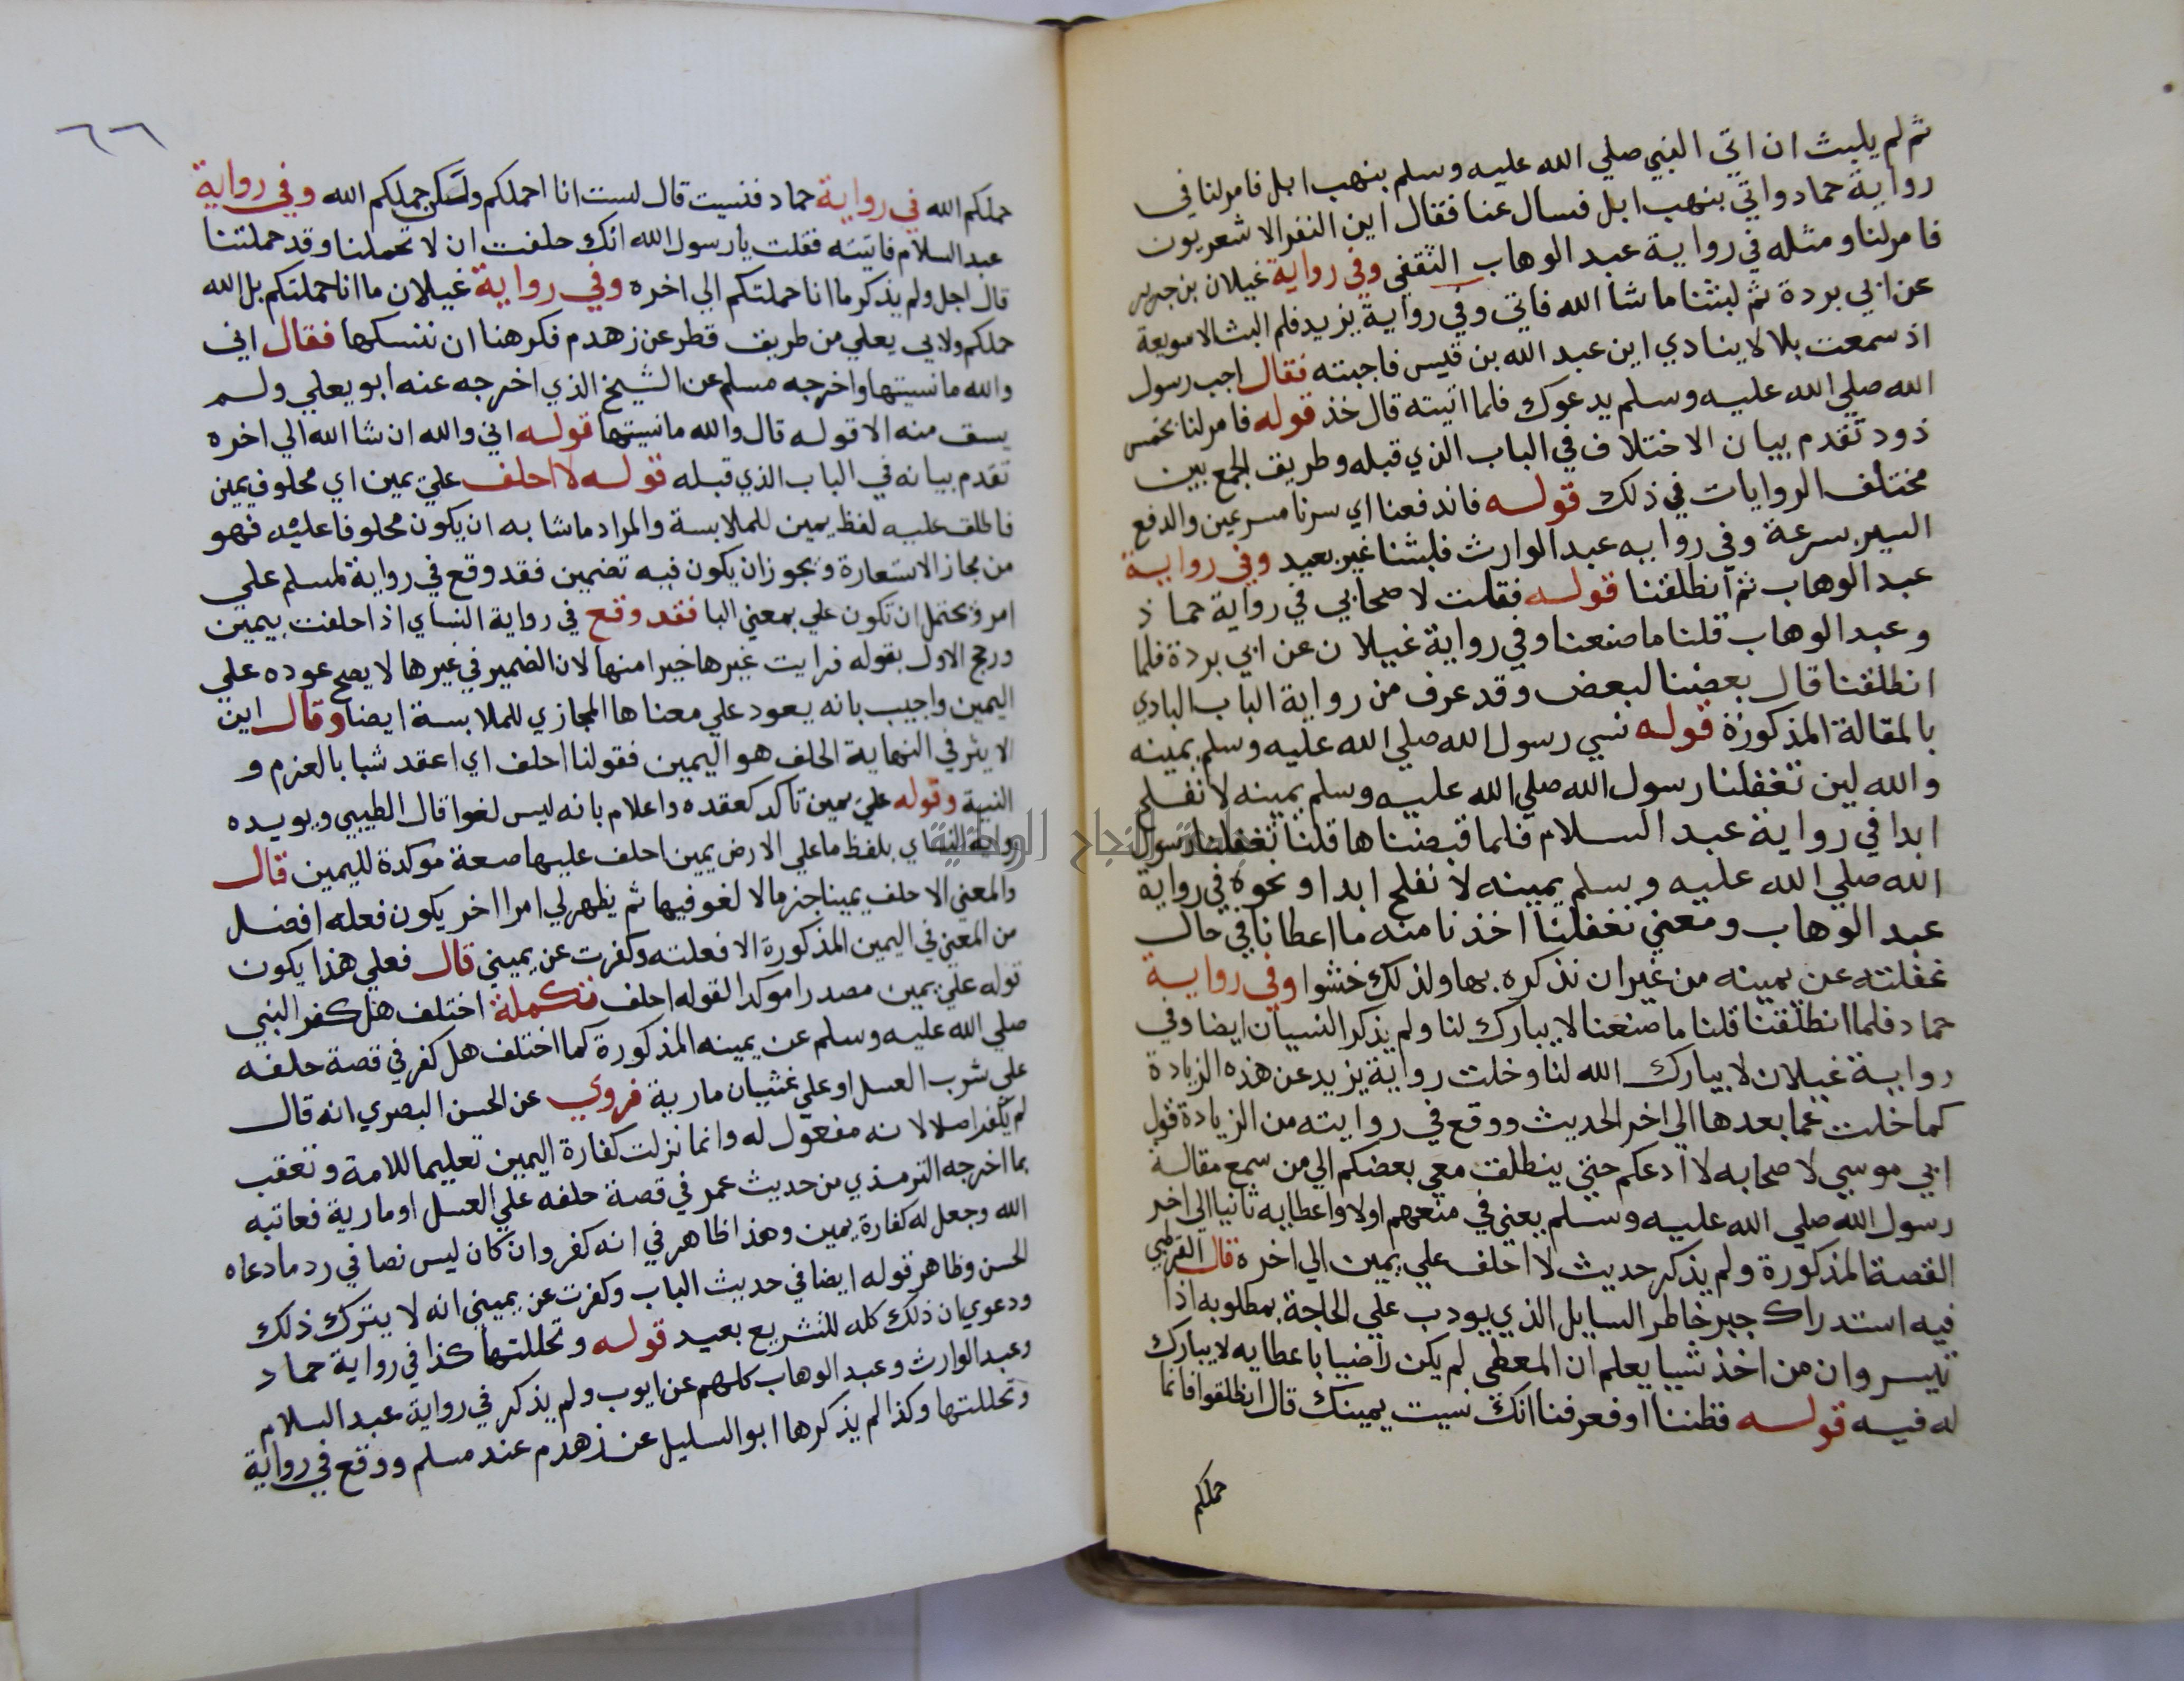 ثم لم يلبث ان اتي النبي صلي الله عليه وسلم بنهب ابل فامر لنا في
رواية حماد واتي بنهب ابل فسال عنا فقال اين النفر الاشعريون
فامر لنا ومثله في رواية عبد الوهاب الثقفي وفي رواية غيلان بن جرير
عن ابي بردة ثم لبثنا ما شا الله فاتي وفي رواية يزيد فلم البث الا سويعة
اذ سمعت بلالا ينادي اين عبد الله بن قيس فاجبته فقال اجب رسول
الله صلي الله عليه وسلم يدعوك فلما اتيته قال خذ قوله فامر لنا بخمس
ذود تقدم بيان الاختلاف في الباب الذي قبله وطريق الجمع بين
مختلف الروايات في ذلك قوله فاندفعنا اي سرنا مسرعين والدفع
السير بسرعة وفي رواية عبد الوارث فلبثنا غير بعيد وفي رواية
عبد الوهاب ثم انطلقنا قوله فقلت لاصحابي في رواية حماد
وعبد الوهاب قلنا ما صنعنا وفي رواية غيلان عن ابي بردة فلما
انطلقنا قال بعضنا لبعض وقد عرف من رواية الباب البادي
بالمقالة المذكورة قوله نسي رسول الله صلي الله عليه وسلم يمينه
والله لين تغفلنا رسول الله صلي الله عليه وسلم يمينه لا نفلح
ابدا في رواية عبد السلام فلما قبضناها قلنا تغفلنا رسول
الله صلي الله عليه وسلم يمينه لا نفلح ابدا ونحوه في رواية
عبد الوهاب ومعني تغفلنا اخذنا منه ما اعطانا في حال
غفلته عن يمينه من غير ان نذكره بها ولذلك خشوا وفي رواية
حماد فلما انطلقنا قلنا ما صنعنا لا يبارك لنا ولم يذكر النسيان ايضا وفي
رواية غيلان لا يبارك الله لنا وخلت رواية يزيد عن هذه الزيادة
كما خلت عما بعدها الي اخر الحديث ووقع في روايته من الزيادة قول
ابي موسي لاصحابه لا ادعكم حتي ينطلق معي بعضكم الي من سمع مقالة
رسول الله صلي الله عليه وسلم يعني في منعهم اولا واعطايه ثانيا الي اخر
القصة المذكورة ولم يذكر حديث لا احلف علي يمين الي اخره قال القرطبي
فيه استدراك جبر خاطر السايل الذي يودب علي الحاجة بمطلوبه اذا
تيسر وان من اخذ شيا يعلم ان المعطي لم يكن راضيا باعطايه لا يبارك
له فيه قوله فظننا او فعرفنا انك نسيت يمينك قال انطلقوا فانما
حملكم
٦٦
حملكم الله في رواية حماد فنسيت قال لست انا احملكم ولكن حملكم الله وفي رواية
عبد السلام فاتيته فقلت يا رسول الله انك حلفت ان لا تحملنا وقد حملتنا
قال اجل ولم يذكر ما انا حملتكم الي اخره وفي رواية غيلان ما انا حملتكم بل الله
حملكم ولابي يعلي من طريق قطر عن زهدم فكرهنا ان ننسكها فقال اني
والله ما نسيتها واخرجه مسلم عن الشيخ الذي اخرجه عنه ابو يعلي ولم
يسق منه الا قوله قال والله ما نسيتها قوله اني والله ان شا الله الي اخره
تقدم بيانه في الباب الذي قبله قوله لا احلف علي يمين اي محلوف يمين
فاطلق عليه لفظ يمين للملابسة والمراد ما شا به ان يكون محلوفا عليه فهو
من مجاز الاستعارة ويجوز ان يكون فيه تضمين فقد وقع في رواية لمسلم علي
امر ويحتمل ان تكون علي بمعني البا فقد وقع في رواية النساي اذا حلفت بيمين
ورجح الاول بقوله فرايت غيرها خيرا منها لان الضمير في غيرها لا يصح عوده علي
اليمين واجيب بانه يعود علي معناها المجازي للملابسة ايضا وقال ابن
الاثير في النهاية الحلف هو اليمين فقولنا احلف اي اعقد شيا بالعزم و
النية وقوله علي يمين تاكد كعقده واعلام بانه ليس لغوا قال الطيبي ويويده
رواية النساي بلفظ ما علي الارض يمين احلف عليها صعة موكدة لليمين قال
والمعني لا احلف يمينا جزما لا لغو فيها ثم يظهر لي امرا اخر يكون فعله افضل
من المعني في اليمين المذكورة الا فعلته وكفرت عن يميني قال فعلي هذا يكون
قوله علي يمين مصدرا موكدا لقوله احلف تكملة اختلف هل كفر النبي
صلي الله عليه وسلم عن يمينه المذكورة كما اختلف هل كفر في قصة حلفه
علي شرب العسل او علي غشيان مارية فروي عن الحسن البصري انه قال
لم يكفر اصلا لانه مفعول له وانما نزلت كفارة اليمين تعليما للامة وتعقب
بما اخرجه الترمذي من حديث عمر في قصة حلفه علي العسل او مارية فعاتبه
الله وجعل له كفارة يمين وهذا ظاهر في انه كفر وان كان ليس نصا في رد ما دعاه
الحسن وظاهر قوله ايضا في حديث الباب وكفرت عن يميني انه لا يترك ذلك
ودعوي ان ذلك كله للتشريع بعيد قوله وتحللتها كذا في رواية حماد
وعبد الوارث وعبد الوهاب كلهم عن ايوب ولم يذكر في رواية عبد السلام
وتحللتها وكذا لم يذكرها ابو السليل عن زهدم عند مسلم ووقع في رواية
جامعة النجاح الوطنية